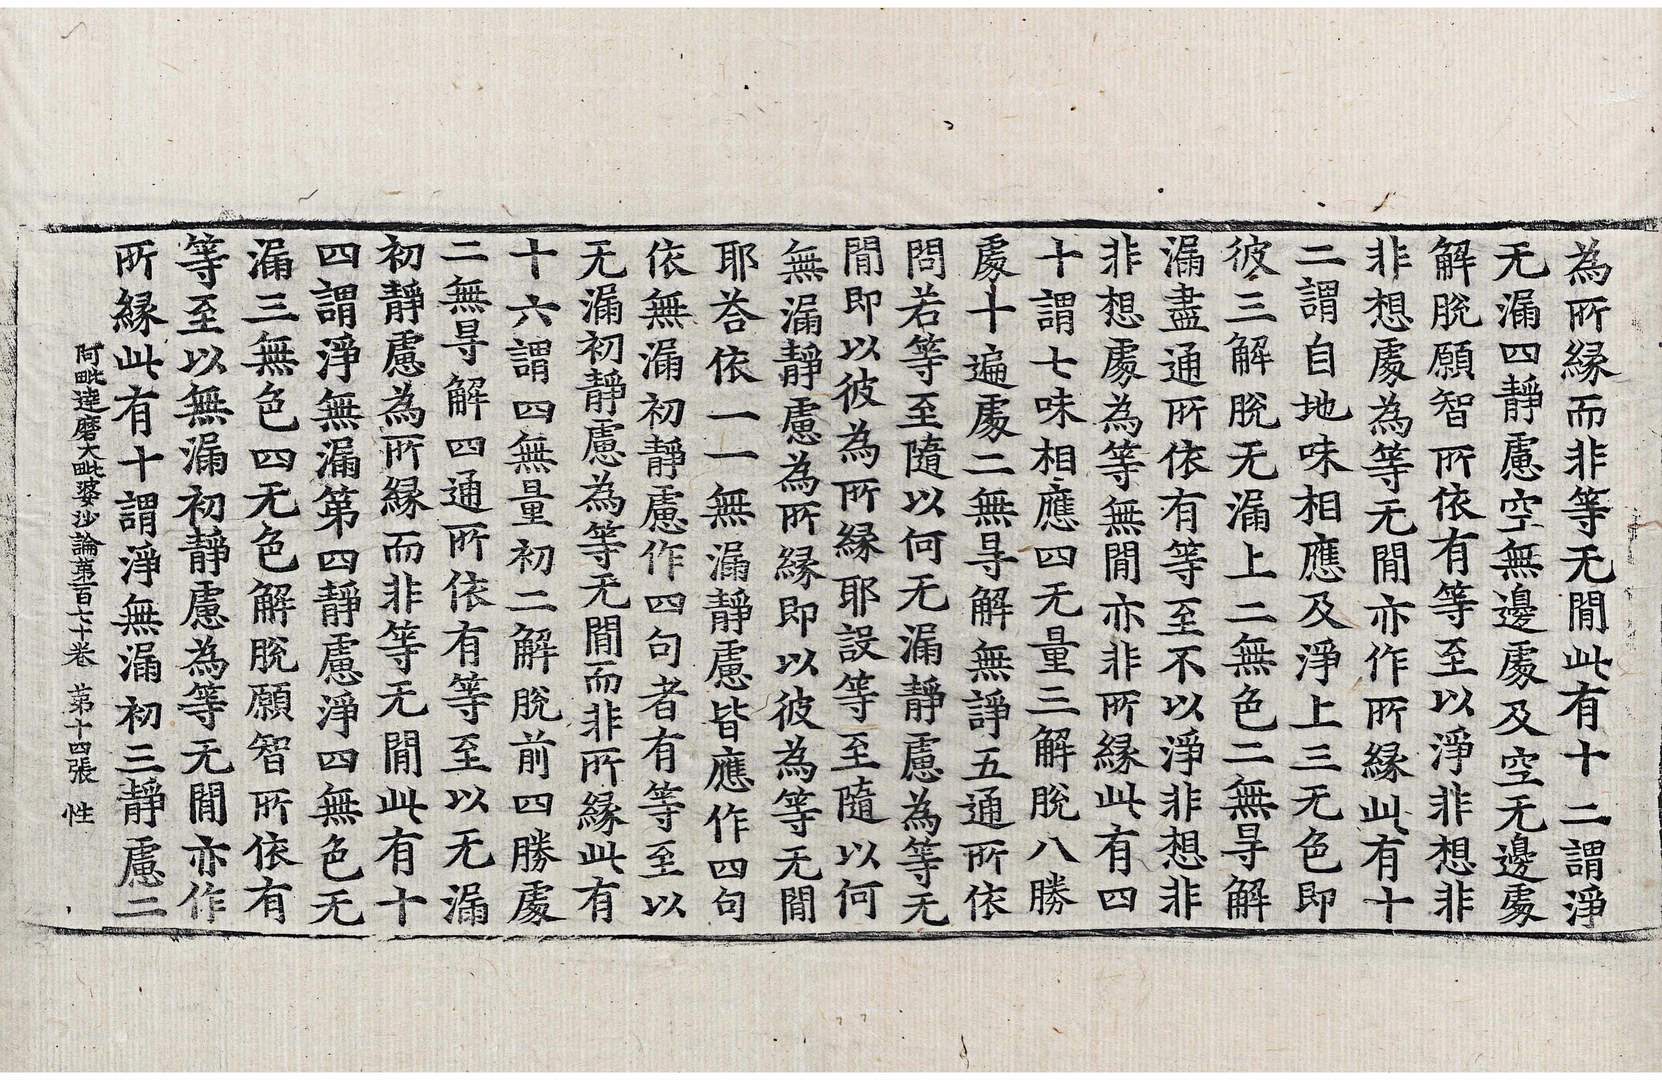 為所緣而非等无間此有十二謂淨
无漏四靜慮空無邊處及空无邊處
解脫願智所依有等至以淨非想非
非想處為等无間亦作所緣此有十
二謂自地味相應及淨上三无色即
彼三解脫无漏上二無色二無㝵解
漏盡通所依有等至不以淨非想非
非想處為等無間亦非所緣此有四
十謂七味相應四无量三解脫八勝
處十遍處二無㝵解無諍五通所依
問若等至隨以何无漏靜慮為等无
間即以彼為所緣耶設等至隨以何
無漏靜慮為所緣即以彼為等无間
耶荅依一一無漏靜慮皆應作四句
依無漏初靜慮作四句者有等至以
无漏初靜慮為等无間而非所緣此有
十六謂四無量初二解脫前四勝處
二無㝵解四通所依有等至以无漏
初靜慮為所緣而非等无間此有十
四謂淨無漏第四靜慮淨四無色无
漏三無色四无色解脫願智所依有
等至以無漏初靜慮為等无間亦作
所緣此有十謂淨無漏初三靜慮二
阿毗達磨大毗婆沙論第百七十卷 第十四張 性